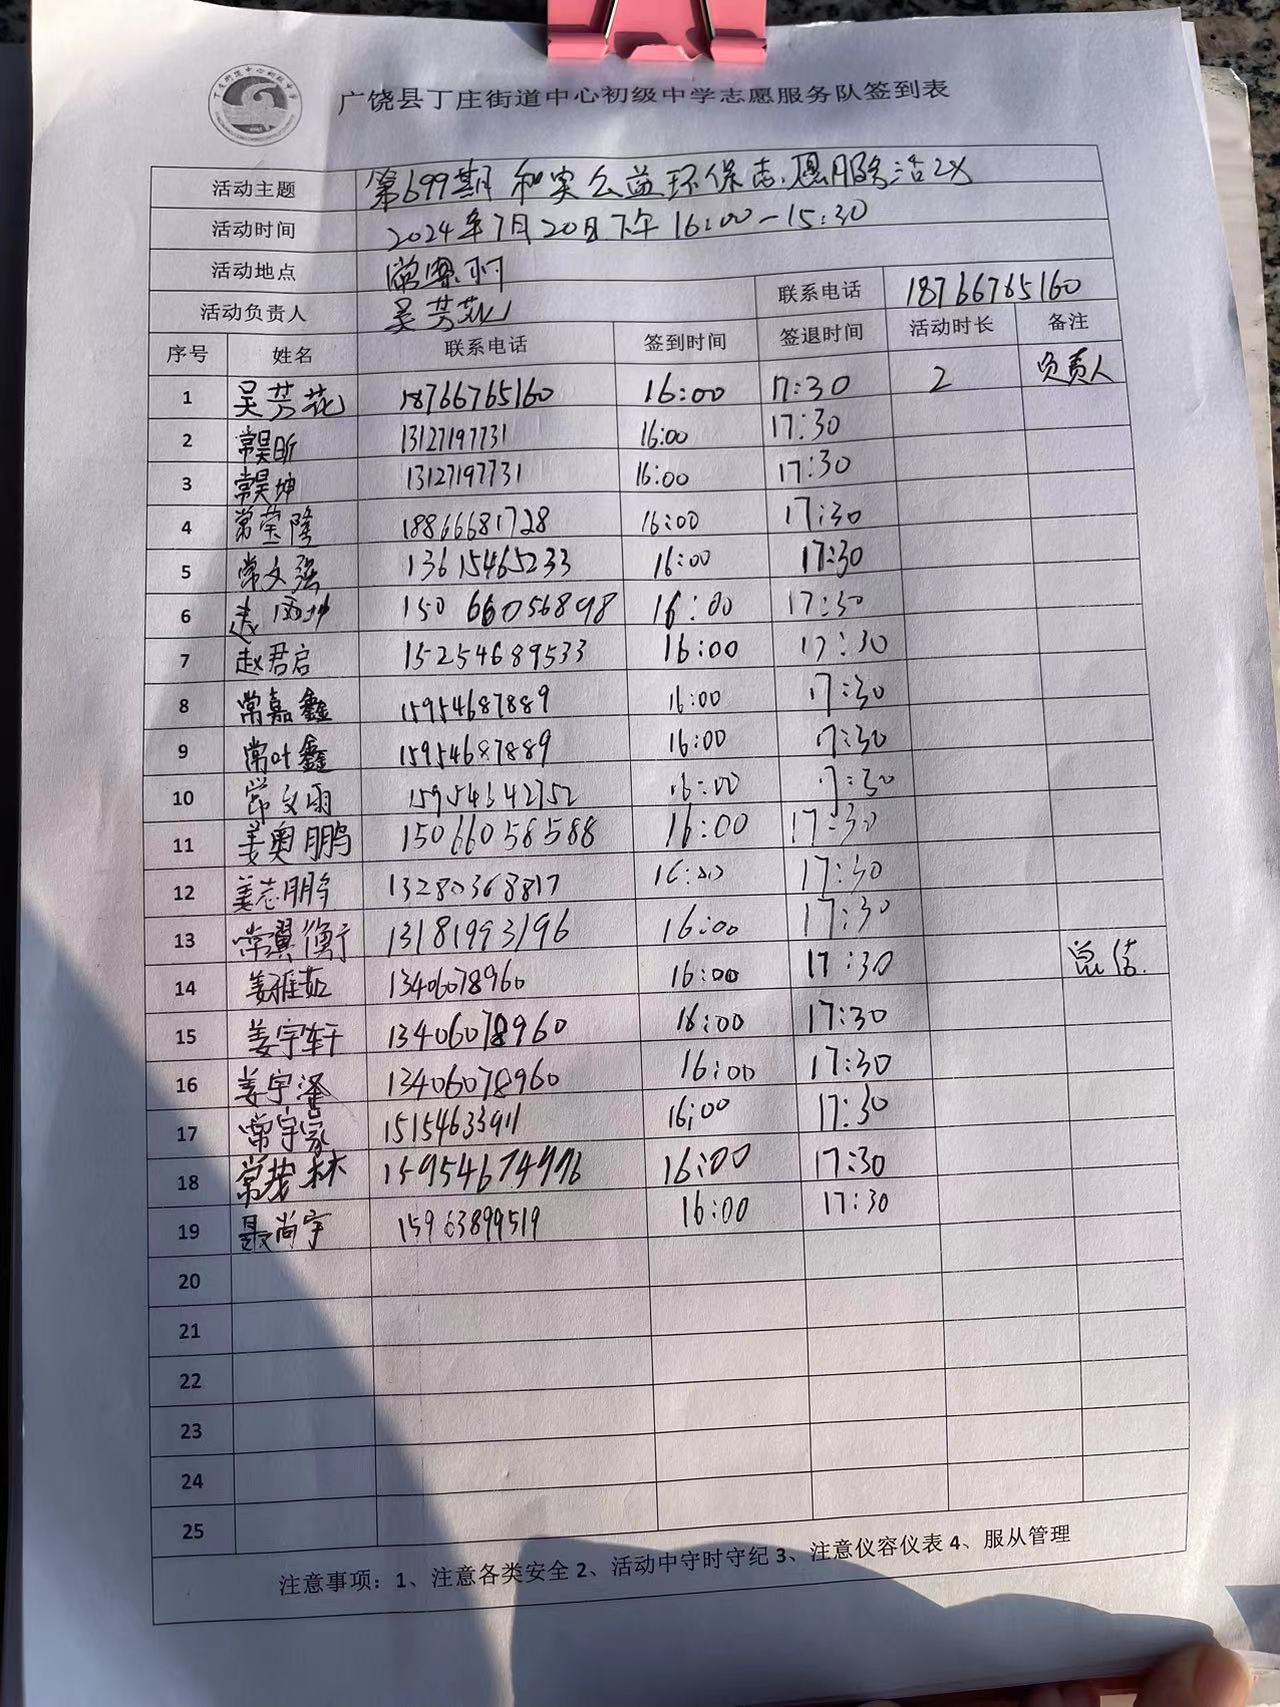 广饶县丁庄街道中心初级中学志愿服务队签到表
活动主题 第699期 和实公益环保志愿服务活动
活动时间 2024年7月20日下午16:00-15:30
活动地点
活动负责人 吴芳花 联系电话 18766765160
序号 姓名 联系电话 签到时间 签退时间 活动时长 备注
1 吴芳花 18766765160 16:00 17:30 2 负责人
2 常昊昕 13127197731 16:00 17:30
3 常昊坤 13127197731 16:00 17:30
4 常莹隆 18866681728 16:00 17:30
5 常文强 13615465233 16:00 17:30
6 15066056898 16:00 17:30
7 赵君启 15254689533 16:00 17:30
8 常嘉鑫 15954687889 16:00 17:30
9 常叶鑫 15954687889 16:00 17:30
10 常文雨 15954642752 16:00 17:30
11 姜奥鹏 15066058588 16:00 17:30
12 姜志鹏 13280368817 16:00 17:30
13 常翼衡 13181993196 16:00 17:30
14 姜雅茹 13406078960 16:00 17:30 总结
15 姜宇轩 13406078960 16:00 17:30
16 姜宇泽 13406078960 16:00 17:30
17 常宇豪 15154633911 16:00 17:30
18 常茂林 15954674976 16:00 17:30
19 聂尚宇 15963899519 16:00 17:30
20
21
22
23
24
25
注意事项：1、注意各类安全 2、活动中守时守纪 3、注意仪容仪表 4、服从管理